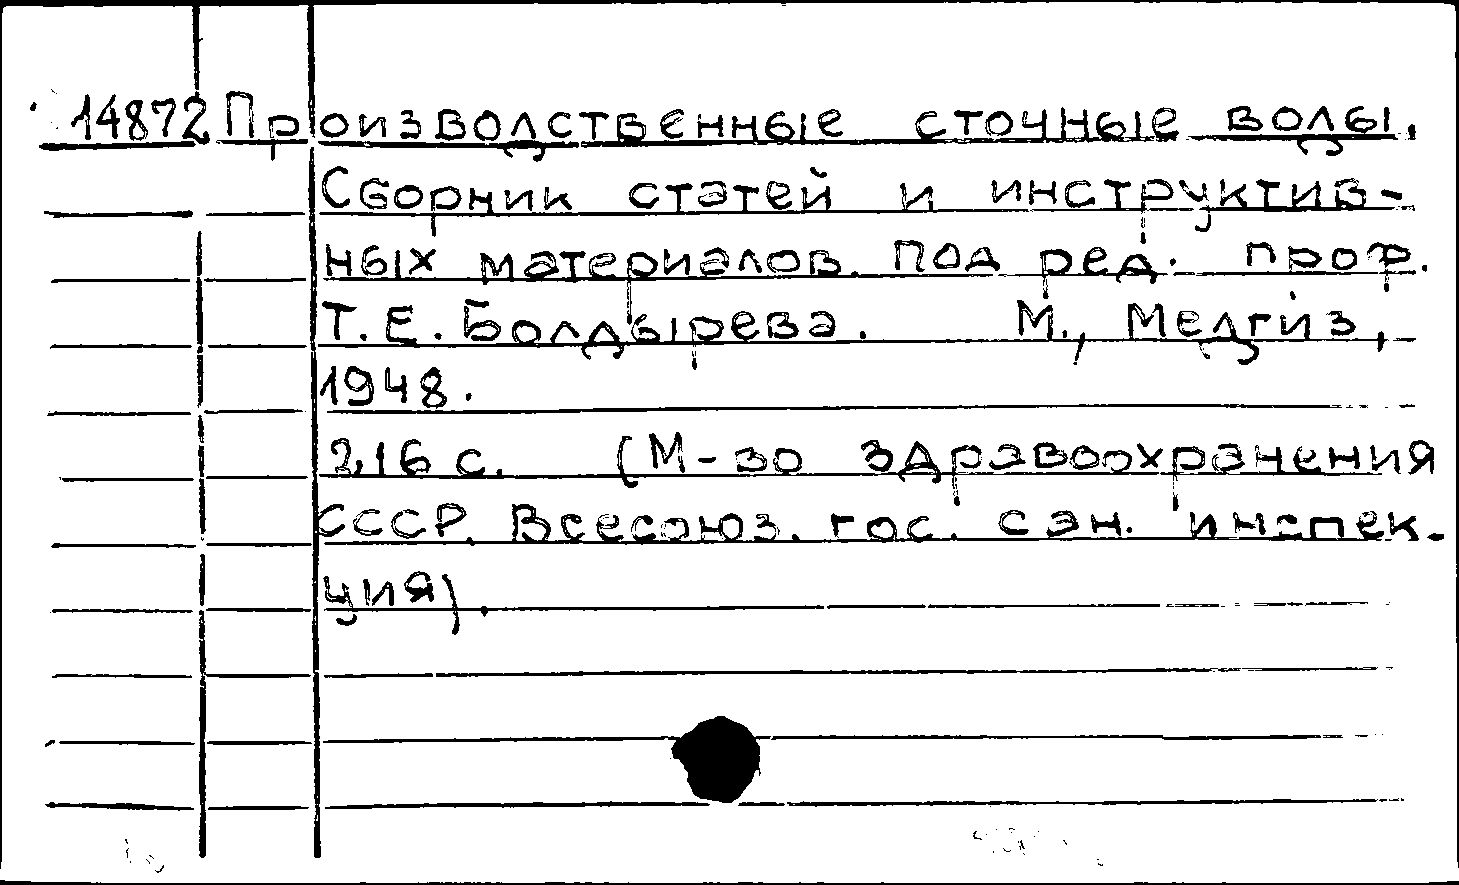 14872 Производственные сточные воды.
Сборник статей и инструктив-
ных материалов. Под ред. проф.
Т. Е. Болдырева. М., Медгиз,
1948.
216 с. (М-во здравоохранения
СССР. Всесоюз. гос. сан. инспек-
ция).